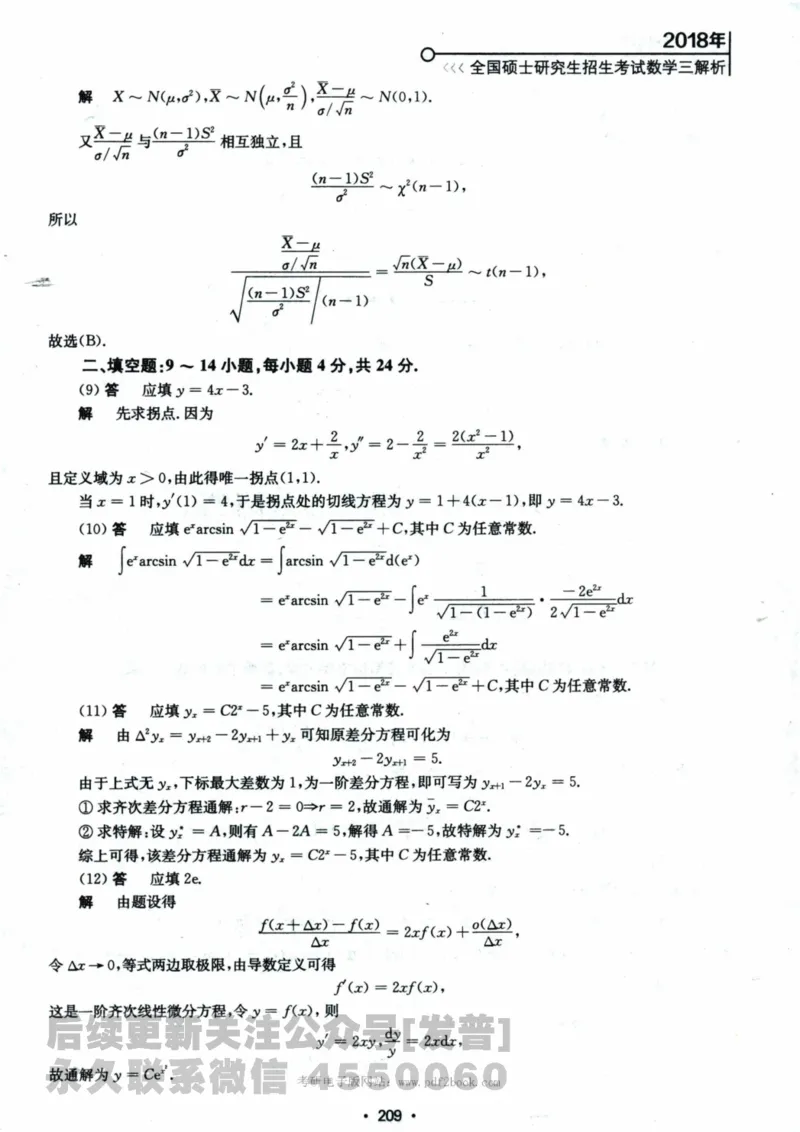 2018年
<<< 全国硕士研究生招生考试数学三解析
解 X ~ N(μ,σ²),X̄ ~ N(μ,σ²/n),(X̄−μ)/(σ/√n) ~ N(0,1).
又 (X̄−μ)/(σ/√n) 与 (n−1)S²/σ² 相互独立,且
(n−1)S²/σ² ~ χ²(n−1),
所以
((X̄−μ)/(σ/√n))/√(((n−1)S²/σ²)/(n−1)) = √n(X̄−μ)/S ~ t(n−1),
故选(B).
二、填空题:9 ~ 14 小题,每小题 4 分,共 24 分.
(9) 答 应填 y = 4x−3.
解 先求拐点.因为
y′ = 2x + 2/x, y″ = 2 − 2/x² = 2(x²−1)/x²,
且定义域为 x > 0,由此得唯一拐点(1,1).
当 x = 1 时,y′(1) = 4,于是拐点处的切线方程为 y = 1+4(x−1),即 y = 4x−3.
(10) 答 应填 eˣarcsin √(1−e²ˣ) − √(1−e²ˣ) + C,其中 C 为任意常数.
解 ∫eˣarcsin √(1−e²ˣ)dx = ∫arcsin √(1−e²ˣ)d(eˣ)
= eˣarcsin √(1−e²ˣ) − ∫eˣ 1/√(1−(1−e²ˣ)) · −2e²ˣ/(2√(1−e²ˣ))dx
= eˣarcsin √(1−e²ˣ) + ∫e²ˣ/√(1−e²ˣ)dx
= eˣarcsin √(1−e²ˣ) − √(1−e²ˣ) + C,其中 C 为任意常数.
(11) 答 应填 yₓ = C2ˣ−5,其中 C 为任意常数.
解 由 Δ²yₓ = yₓ₊₂−2yₓ₊₁+yₓ 可知原差分方程可化为
yₓ₊₂−2yₓ₊₁ = 5.
由于上式无 yₓ,下标最大差数为 1,为一阶差分方程,即可写为 yₓ₊₁−2yₓ = 5.
① 求齐次差分方程通解:r−2 = 0⇒r = 2,故通解为 ȳₓ = C2ˣ.
② 求特解:设 yₓ* = A,则有 A−2A = 5,解得 A =−5,故特解为 yₓ* =−5.
综上可得,该差分方程通解为 yₓ = C2ˣ−5,其中 C 为任意常数.
(12) 答 应填 2e.
解 由题设得
(f(x+Δx)−f(x))/Δx = 2xf(x) + o(Δx)/Δx,
令 Δx → 0,等式两边取极限,由导数定义可得
f′(x) = 2xf(x),
这是一阶齐次线性微分方程,令 y = f(x),则
y′ = 2xy, dy/y = 2xdx,
后续更新关注公众号[发普]
故通解为 y = Ceˣ².
永久联系微信 4550060
考研电子版网站: www.pdf2book.com
· 209 ·